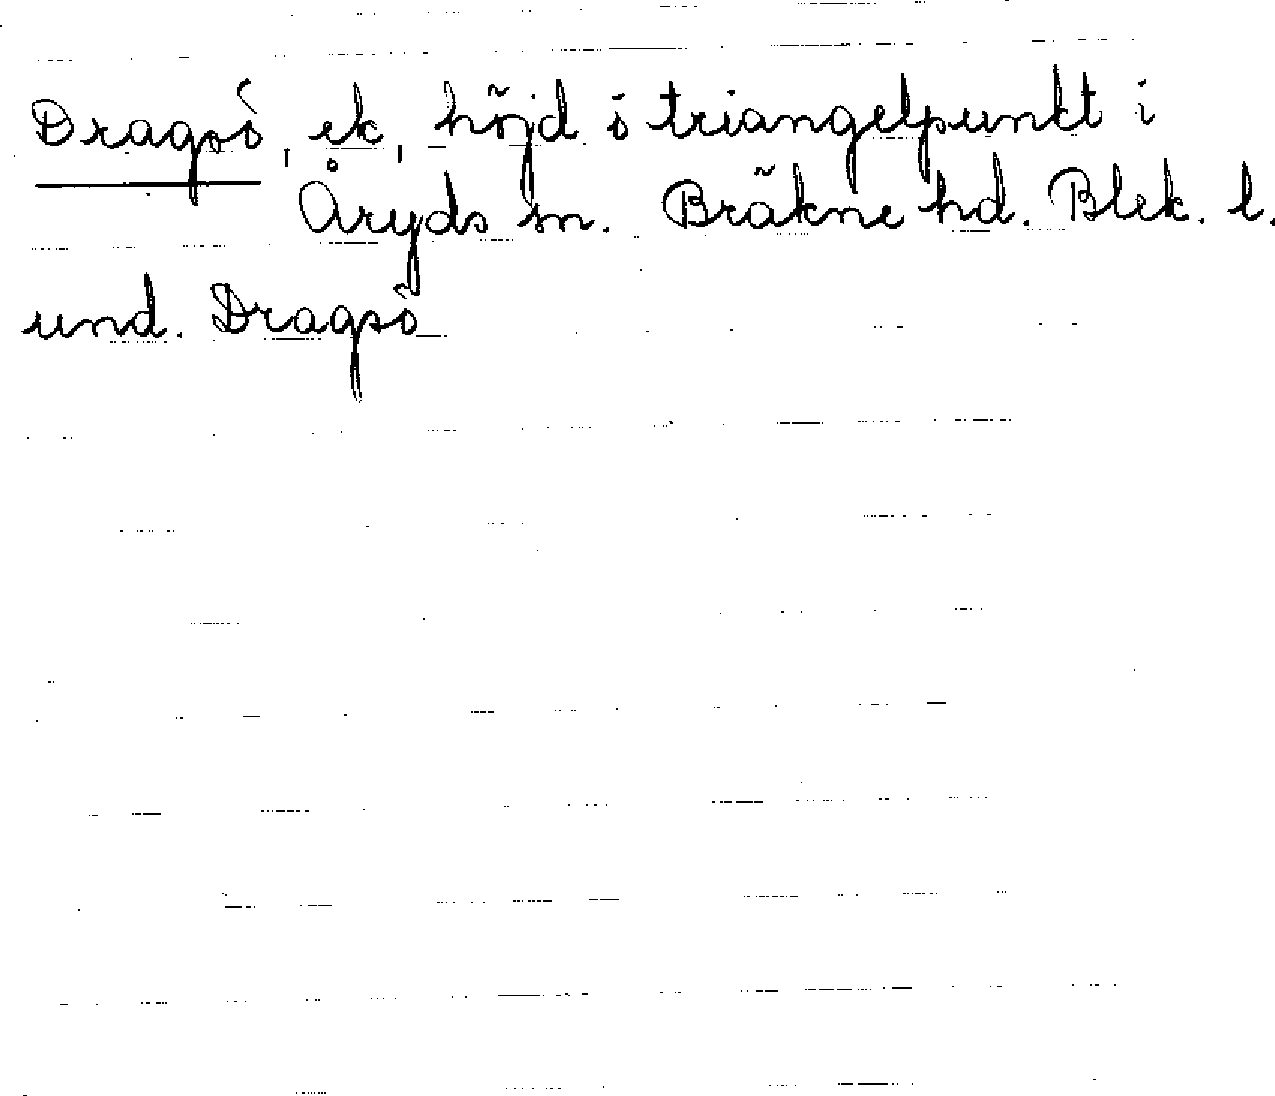 Dragsö, ek, höjd ö triangelpunkt i
Åryds sn. Bräkne hd. Blek. l.
und. Dragsö